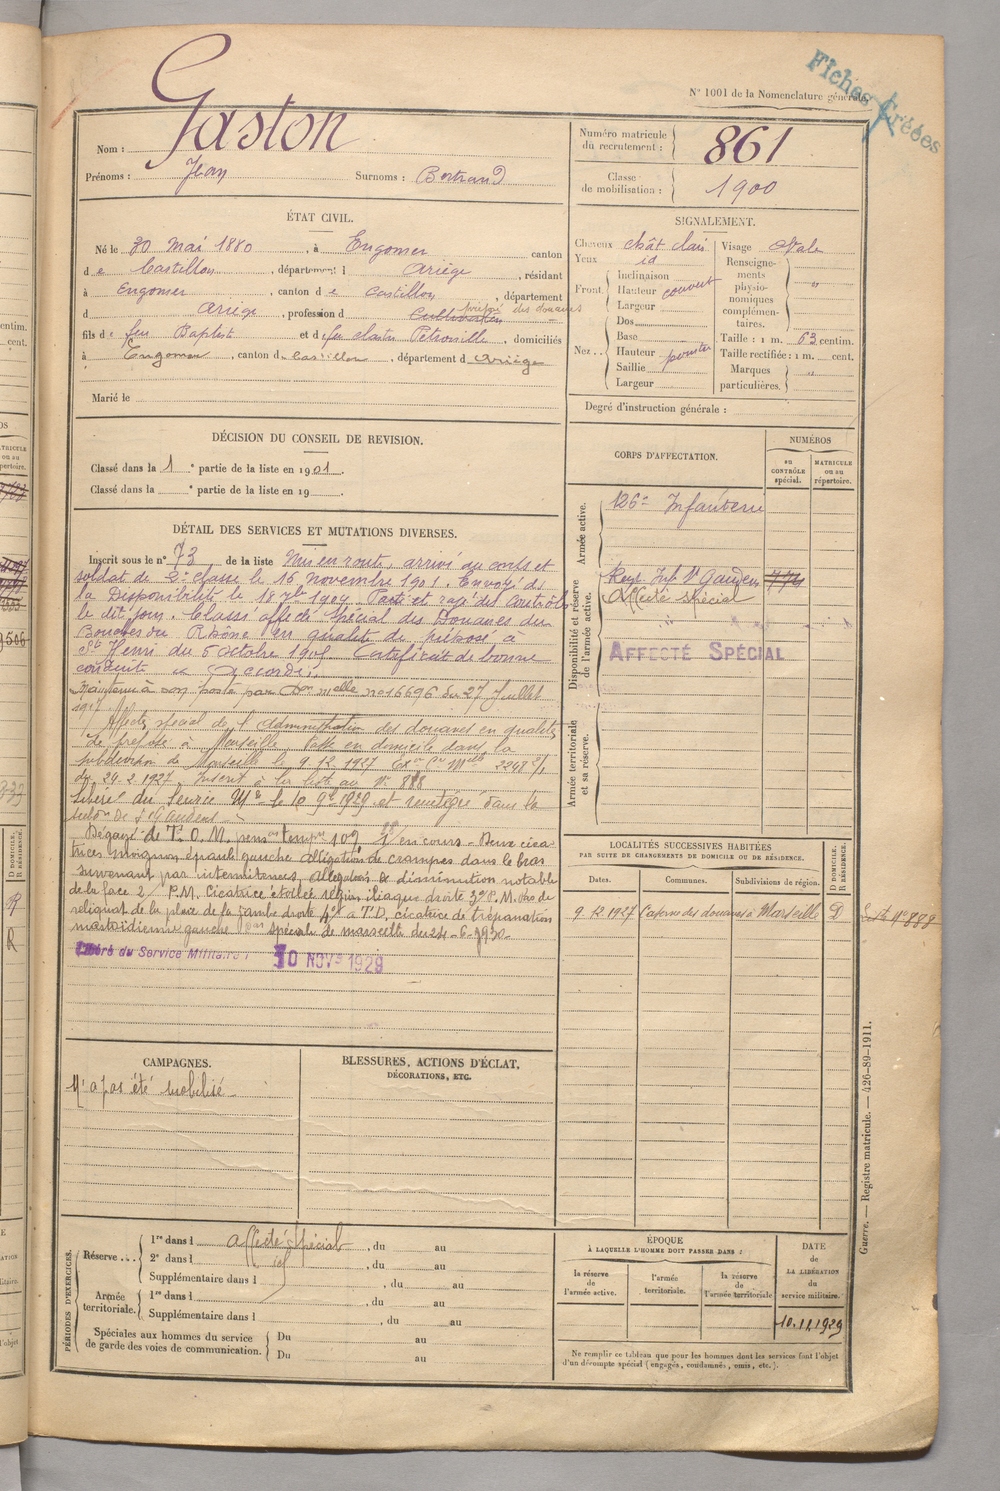 Fiches Créées
N° 1001 de la Nomenclature générale.
Nom : Gaston
Prénoms : Jean Surnoms : Bertrand
Numéro matricule du recrutement : 861
Classe de mobilisation : 1900
ÉTAT CIVIL.
Né le 30 Mai 1880, à Engomer canton
de Castillon, département d Ariège, résidant
à Engomer, canton de Castillon, département
d Ariège, profession d Cultivateur préposé des douanes
fils de feu Baptiste et de feu Petronille, domiciliés
à Engomer, canton de Castillon, département d Ariège
Marié le
SIGNALEMENT.
Cheveux chât clair
Yeux id
Front. Inclinaison
Hauteur couvert
Largeur
Nez. Dos
Base
Hauteur pointu
Saillie
Largeur
Visage ovale
Renseignements physionomiques complémentaires. "
Taille : 1 m. 63 centim.
Taille rectifiée : 1 m. cent.
Marques particulières. "
Degré d'instruction générale :
DÉCISION DU CONSEIL DE REVISION.
Classé dans la 1e partie de la liste en 1901.
Classé dans la e partie de la liste en 19
DÉTAIL DES SERVICES ET MUTATIONS DIVERSES.
Inscrit sous le n° 73 de la liste Mis en route, arrivé au corps et
soldat de 2e classe le 16 novembre 1901. Envoyé dans
la Disponibilité le 18 7bre 1904. Passé et rayé des contrôles
le dit jour. Classé affecté spécial des Douanes des
Bouches du Rhône en qualité de préposé à
St Henri du 5 octobre 1905 Certificat de bonne
conduite " Accordé.
Maintenu à son poste par n° 16696 du 27 Juillet
Affecté spécial de l'Administration des douanes en qualité
de préposé à Marseille. Passe en domicile dans la
subdivision de Marseille le 9.12.1927 2248 2/1
du 24.2.1927. Inscrit à la liste au N° 888
Libéré du Service Mre le 10 9bre 1929 et réintégré dans la
subon de St Gaudens
Dégagé de T.O.M. en cours - Deux cica
trices moignon épaule gauche allégations de crampes dans le bras
survenant par intermitences, allégations de diminution notable
de la face 2/ P.M. Cicatrice étoilée région iliaque droite 3°/ P.M. Pas de
reliquat de la plaie de la jambe droite 4° à T.D. cicatrice de trépanation
mastoïdienne gauche spéciale de Marseille du 24-6-1930-
Libéré du Service Militaire 10 NOVe 1929
CORPS D'AFFECTATION.
NUMÉROS
au CONTRÔLE spécial.
MATRICULE ou au répertoire.
Armée active.
126e Infanterie
Disponibilité et réserve de l'armée active.
Regt Inf St Gaudens 774
Affecté spécial
AFFECTÉ SPÉCIAL
Armée territoriale et sa réserve.
LOCALITÉS SUCCESSIVES HABITÉES
PAR SUITE DE CHANGEMENTS DE DOMICILE OU DE RÉSIDENCE.
Dates. Communes. Subdivisions de région. D DOMICILE. R RÉSIDENCE.
9.12.1927 Caserne des douanes à Marseille D N° 888
CAMPAGNES.
N'a pas été mobilisé
BLESSURES, ACTIONS D'ÉCLAT,
DÉCORATIONS, ETC.
PÉRIODES D'EXERCICES.
Réserve... 1re dans l affecté spécial, du au
2e dans l id, du au
Supplémentaire dans l, du au
Armée territoriale. 1re dans l, du au
Supplémentaire dans l, du au
Spéciales aux hommes du service de garde des voies de communication. Du au
Du au
ÉPOQUE
À LAQUELLE L'HOMME DOIT PASSER DANS :
la réserve de l'armée active.
l'armée territoriale.
la réserve de l'armée territoriale
DATE de LA LIBÉRATION du service militaire.
10.11.1929
Ne remplir ce tableau que pour les hommes dont les services font l'objet
d'un décompte spécial (engagés, condamnés, omis, etc.).
Guerre. — Registre matricule. — 426-89-1911.